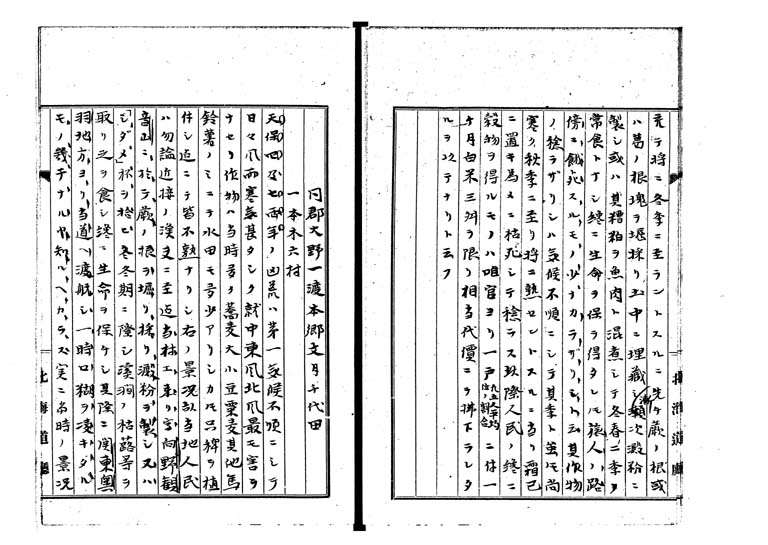 荒テ将ニ冬季ニ至ラントスルニ先ケ蕨ノ根或
ハ葛ノ根塊ヲ堀採リ土中ニ埋藏シ漸次澱粉ニ
製シ或ハ其糟粕ヲ魚肉ト混煮シテ冬春二季ノ
常食トナシ終ニ生命ヲ保ヲ得タレモ旅人ノ路
傍ニ餓死スルモノ少ナカラザリシト云其作物
ノ稔ラザリシハ気候不順ニシテ其季ト虽モ尚
寒ク秋季ニ至リ将ニ熟セントスルニ当リ霜已
ニ置キ為メニ枯死シテ稔ラス故際人民ノ終ニ
穀物ヲ得ルモノハ唯官ヨリ一戸ニ付一
ヶ月白米三舛ヲ限リ相当代價ニテ拂下ラレタ
ルヲ以テナリト云フ
同郡大野一渡本郷文月千代田
一本木六村
天保四年七両年ノ凶荒ハ第一気候不順ニシテ
日々風雨寒気甚タシク就中東風北風最モ害ヲ
ナセリ作物ハ当時多ク蕎麦大小豆粟麦其他馬
鈴薯ノミニテ水田モ多少アリシカモ只稗ヲ植
付シ迄ニテ皆不熟ナリシ右ノ景況故当地人民
ハ勿論近接ノ漢夷ニ至迄当村エ来リ字向野観
音山ニ於テ蕨ノ根ヲ堀リ採リ澱粉ヲ製シ又ハ
取リ之ヲ食シ漸ニ生命ヲ保ケシ其際ニ関東奥
羽地方ヨリ当道ヘ渡航シ一時口糊ヲ凌キタル
モノ幾千ナルヤ知ルヘカラス実ニ当時ノ景況
北海道廳
北海道廳